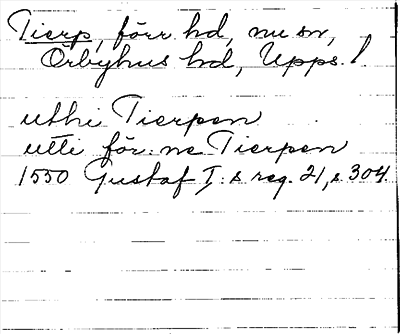 Tierp, förr hd, nu sn,
Örbyhus hd, Upps. l
uthi Tierpen
utti för:ne Tierpen
1550 Gustaf I:s reg. 21, s. 304.